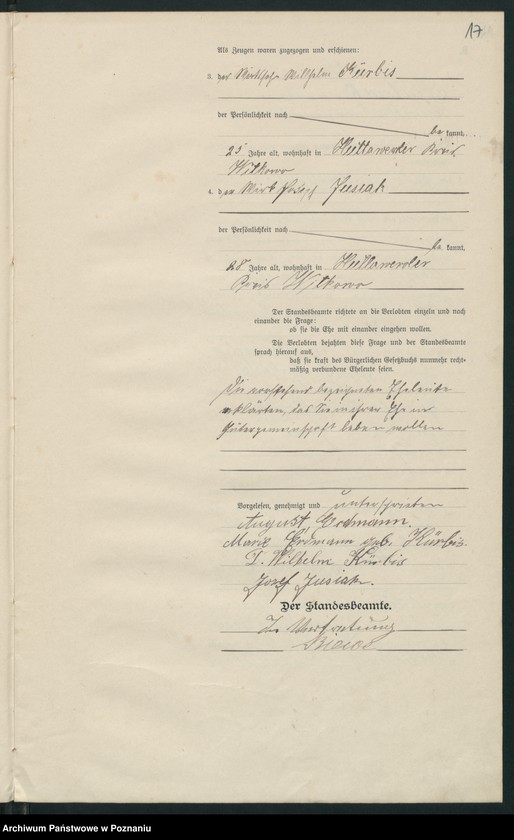 17
Als Zeugen waren zugezogen und erschienen:
3. der Wilhelm Kürbis
der Persönlichkeit nach
be kannt,
25 Jahre alt, wohnhaft in Kreis
Witkowo
4. der Wirt Josef Jusiak
der Persönlichkeit nach
be kannt,
28 Jahre alt, wohnhaft in
Kreis Witkowo
Der Standesbeamte richtete an die Verlobten einzeln und nach
einander die Frage:
ob sie die Ehe mit einander eingehen wollen.
Die Verlobten bejahten diese Frage und der Standesbeamte
sprach hierauf aus,
daß sie kraft des Bürgerlichen Gesetzbuchs nunmehr recht-
mäßig verbundene Eheleute seien.
Die vorstehend bezeichneten Eheleute
erklärten, das Sie in ihrer Ehe in
Gütergemeinschaft leben wollen
Vorgelesen, genehmigt und unterschrieben
August Erdmann.
Marie Erdmann geb. Kürbis.
Wilhelm Kürbis
Jozef Jusiak.
Der Standesbeamte.
In Vertretung
Archiwum Państwowe w Poznaniu